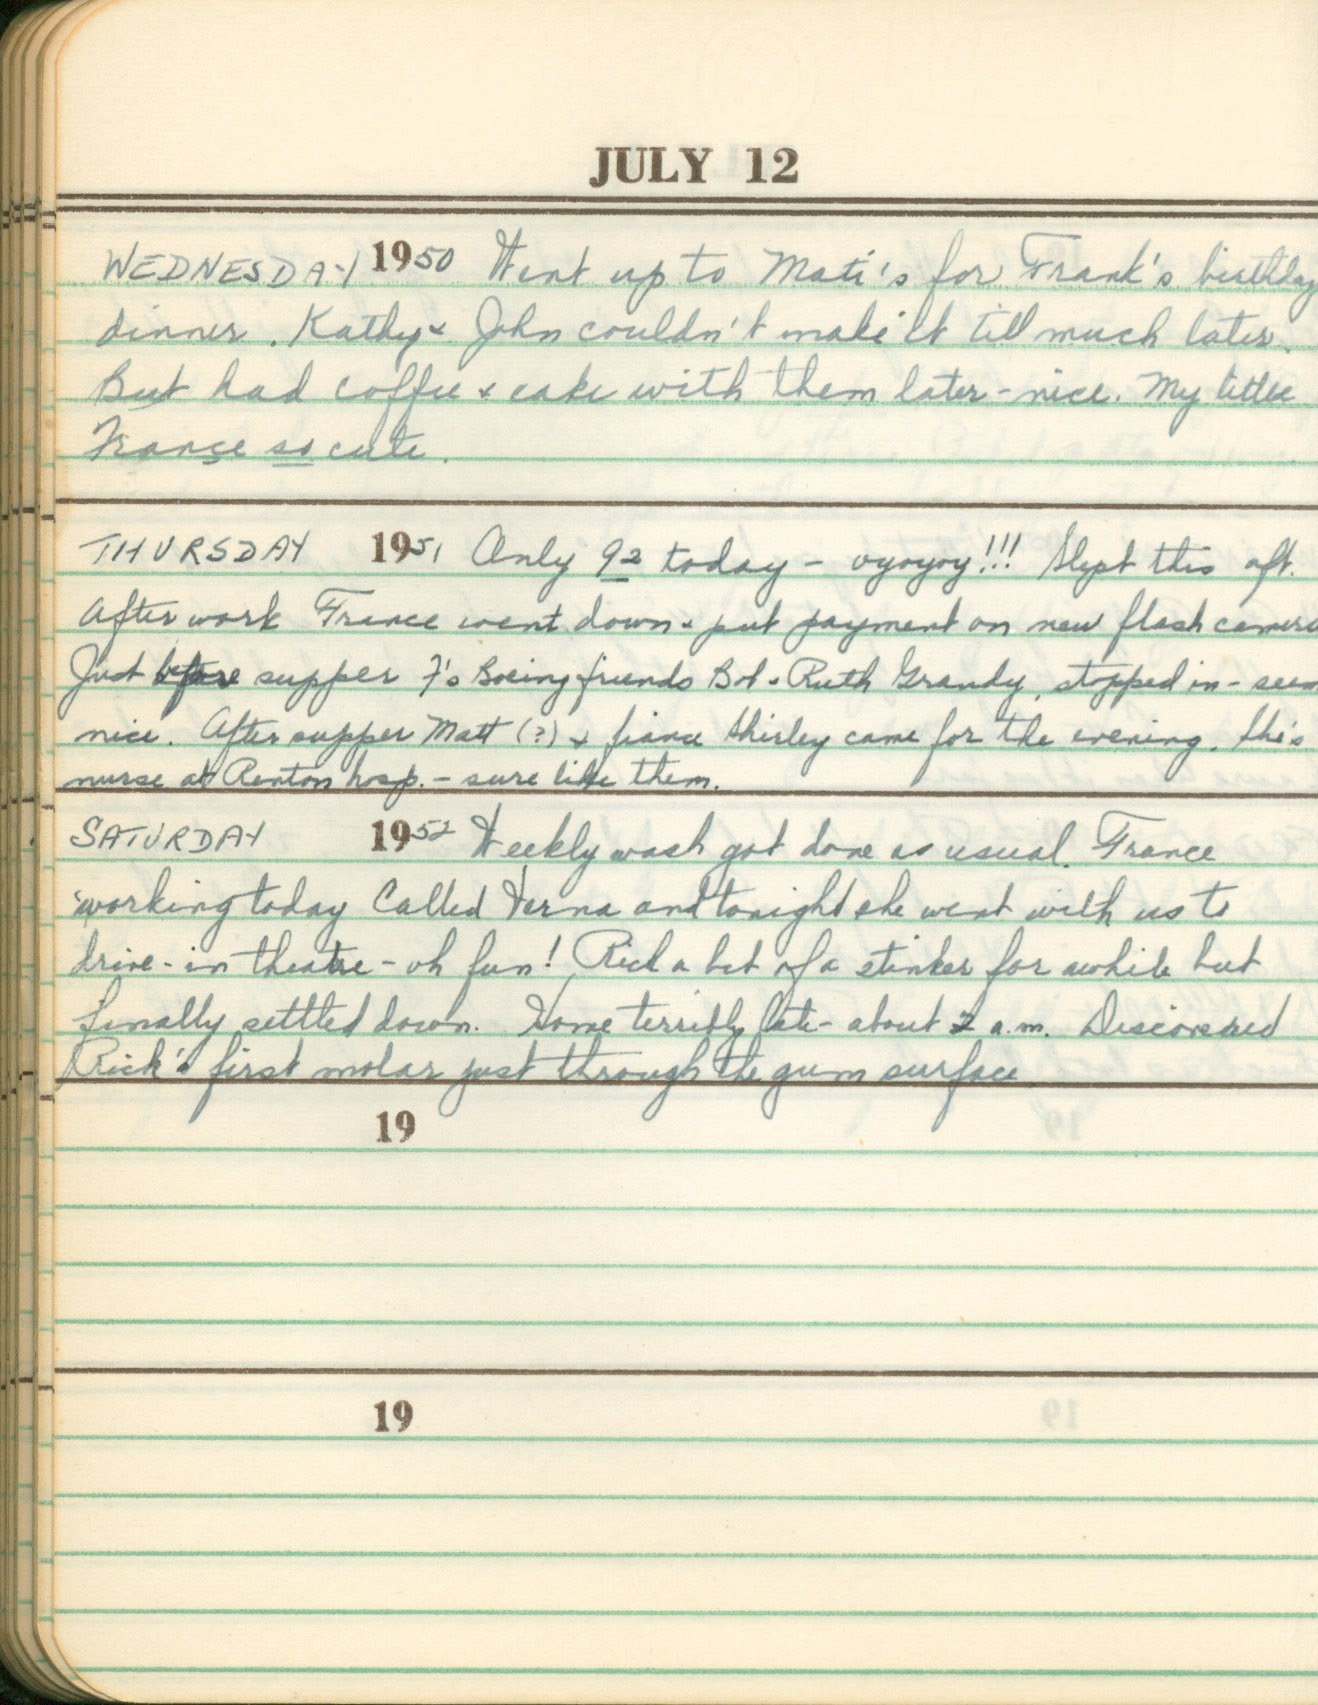 JULY 12
WEDNESDAY 1950 Went up to Mati's for Frank's birthday
dinner. Kathy & John couldn't make it till much later.
But had coffee & cake with them later - nice. My little
France so cute.
THURSDAY 1951 Only 92 today - oyoyoy!!! Slept this aft.
After work France went down & put payment on new flash camera
Just before supper F's Boeing friends Bob & Ruth Grandy, stopped in - seem
nice. After supper Matt (?) & fiance Shirley came for the evening. She's
nurse at Renton hosp. - sure like them.
SATURDAY 1952 Weekly wash got done as usual. France
working today Called Verna and tonight she went with us to
drive-in theatre - oh fun! Rick a bit of a stinker for awhile but
finally settled down. Home terribly late - about 2 a.m. Discovered
Rick's first molar just through the gum surface
19
19